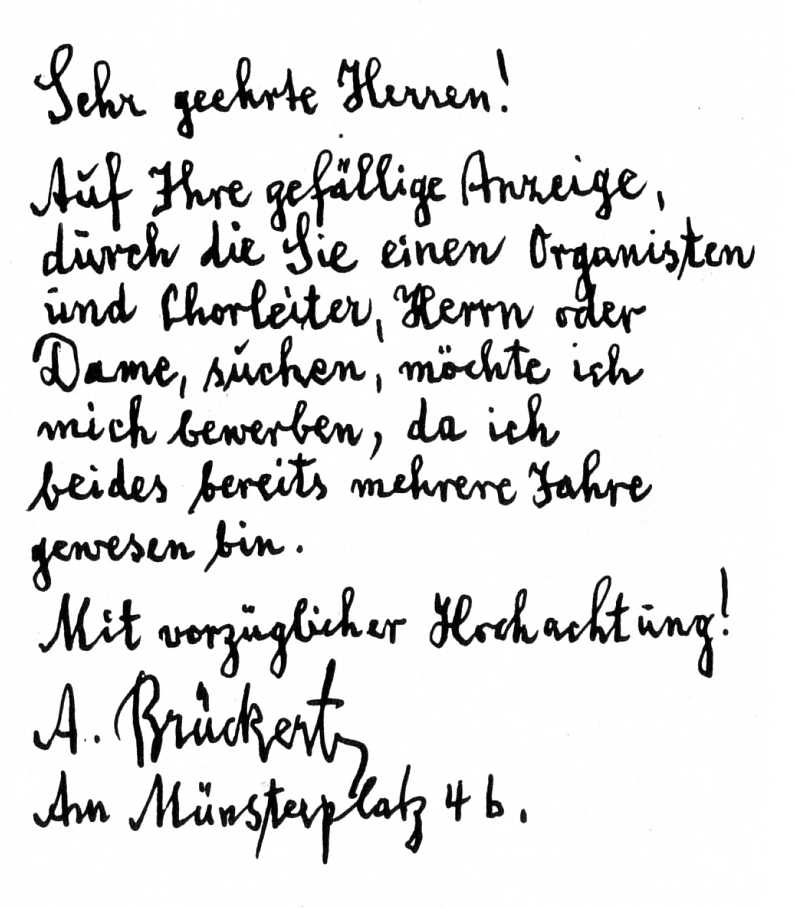 Sehr geehrte Herren!
Auf Ihre gefällige Anzeige,
durch die Sie einen Organisten
und Chorleiter, Herrn oder
Dame, suchen, möchte ich
mich bewerben, da ich
beides bereits mehrere Jahre
gewesen bin.
Mit vorzüglicher Hochachtung!
A. Brückertz
Am Münsterplatz 4 b.